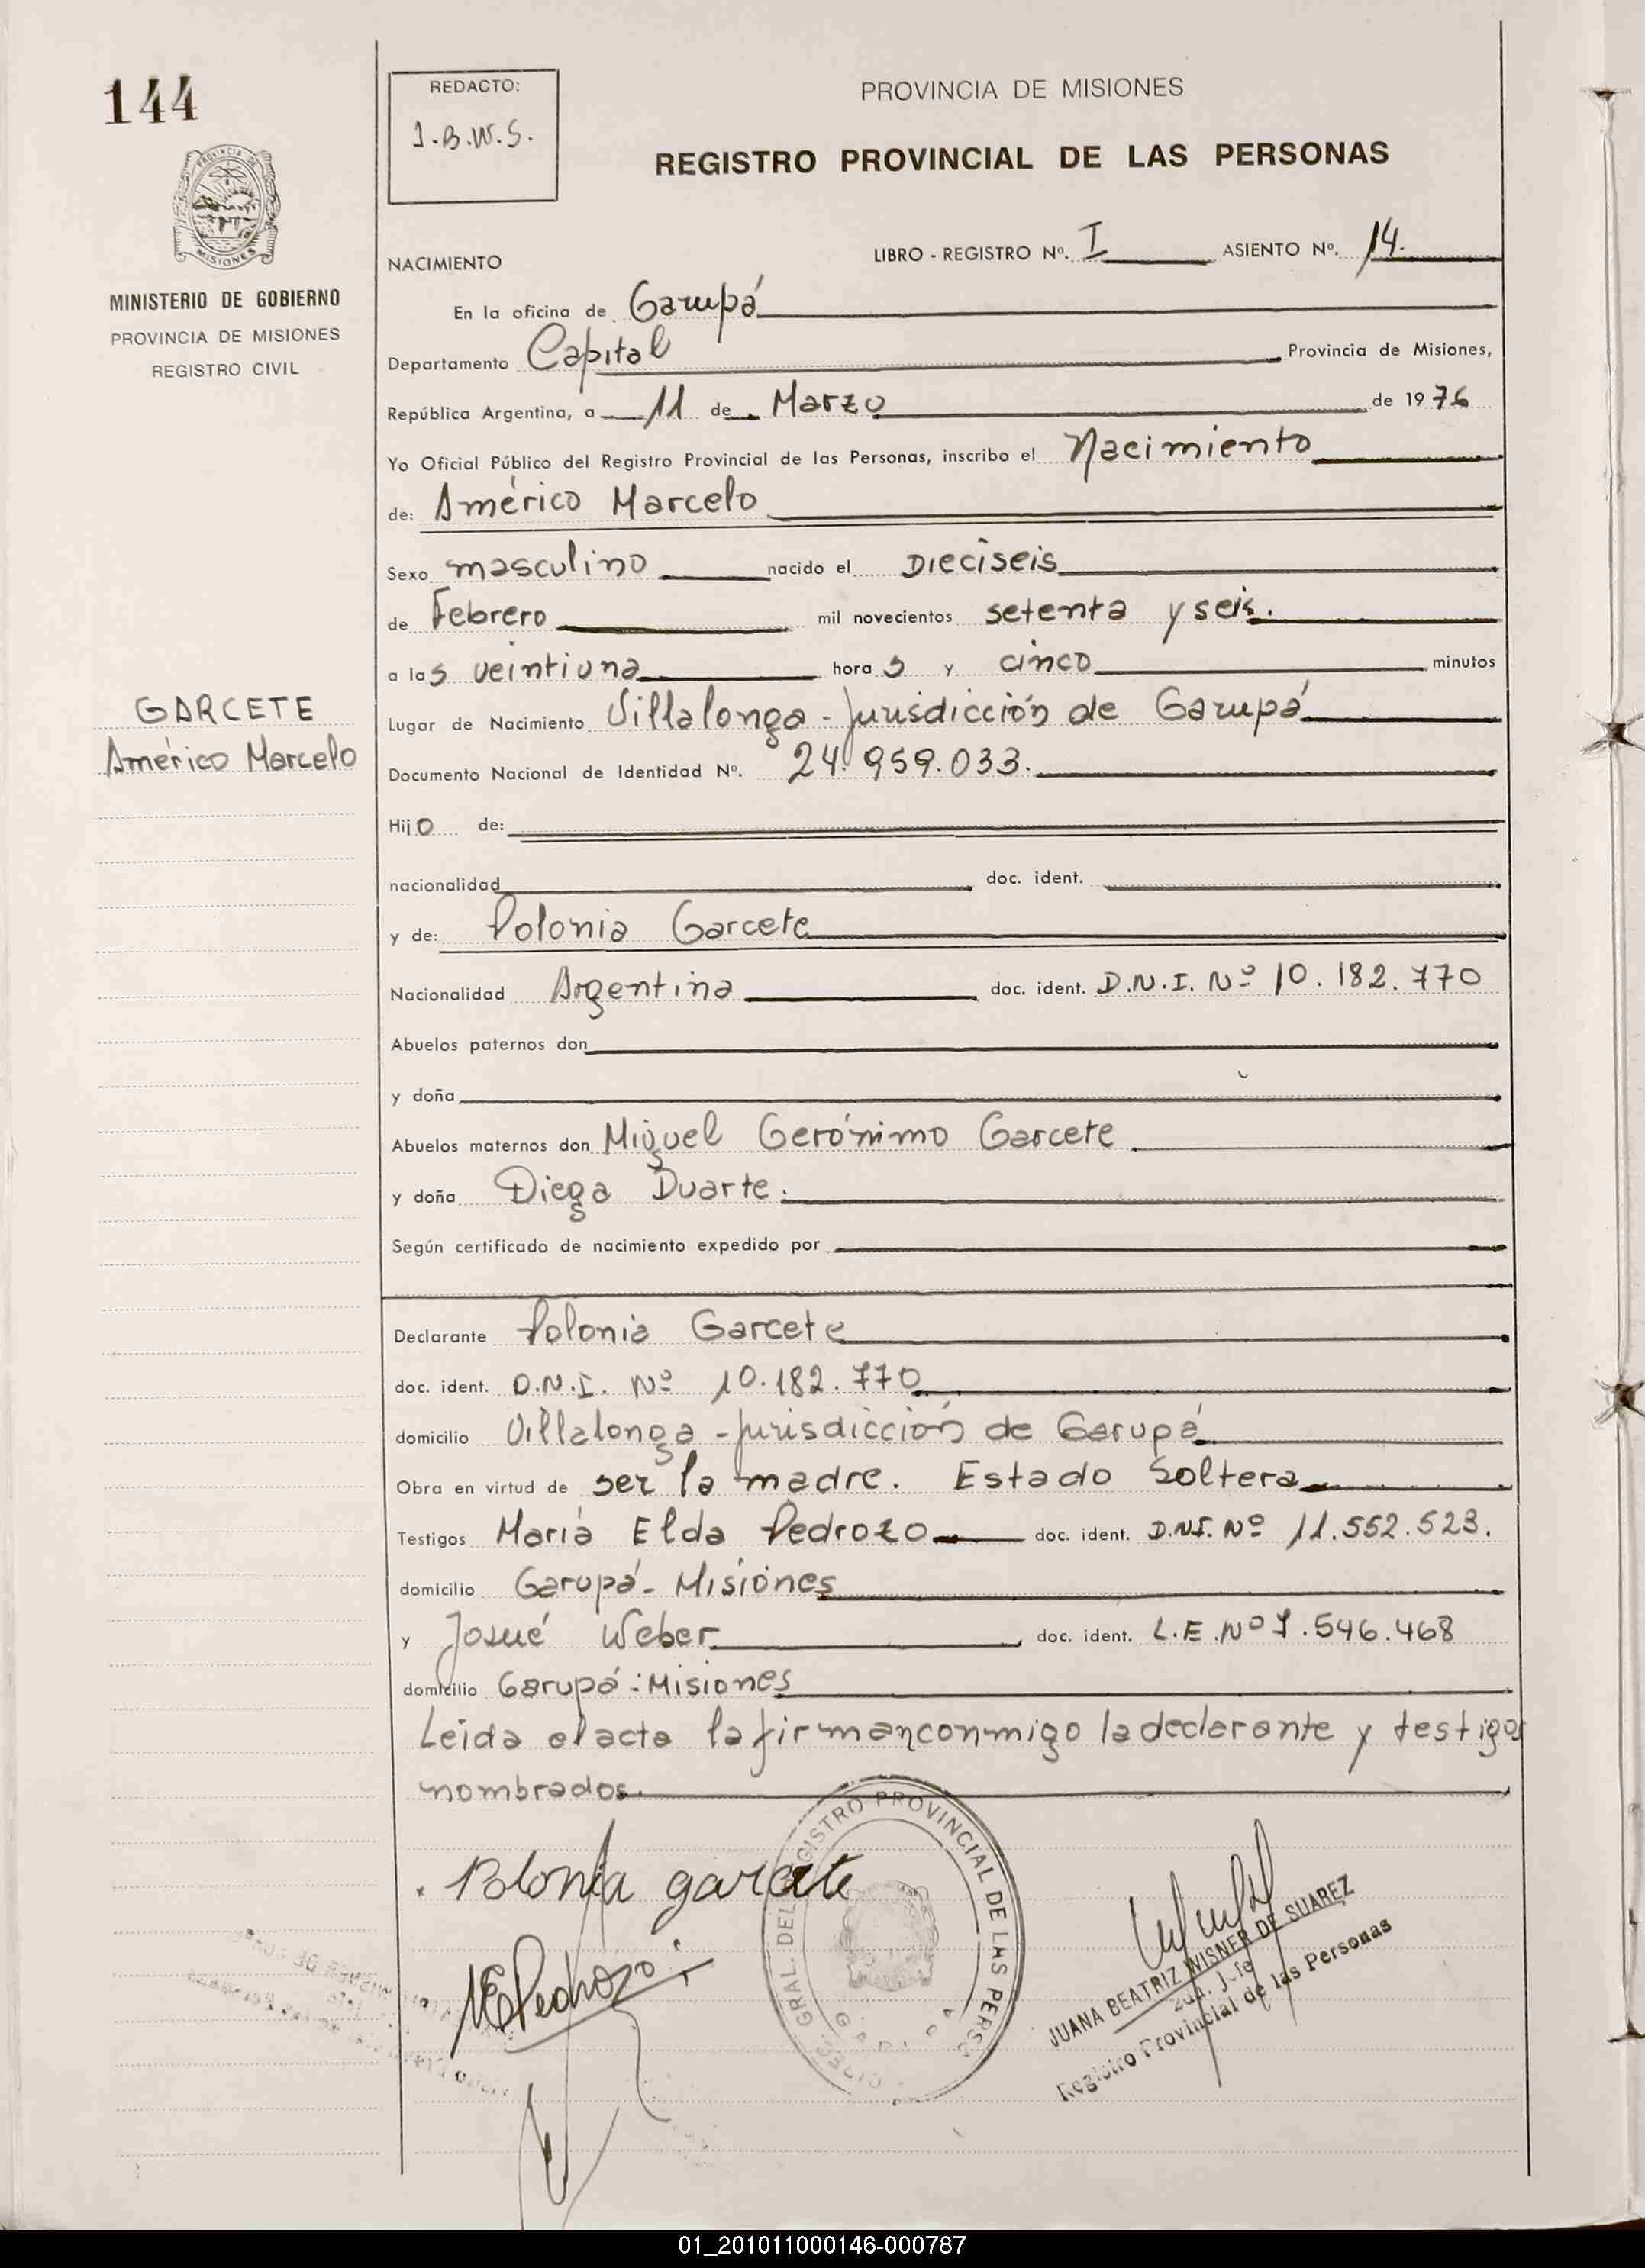 144
REDACTO:
J.B.W.S.
PROVINCIA DE MISIONES
REGISTRO PROVINCIAL DE LAS PERSONAS
PROVINCIA DE
MISIONES
MINISTERIO DE GOBIERNO
PROVINCIA DE MISIONES
REGISTRO CIVIL
NACIMIENTO LIBRO - REGISTRO Nº. I ASIENTO Nº. 14.
En la oficina de Garupá
Departamento Capital Provincia de Misiones,
República Argentina, a 11 de Marzo de 1976
Yo Oficial Público del Registro Provincial de las Personas, inscribo el Nacimiento
de: Américo Marcelo
Sexo masculino nacido el Dieciseis
de Febrero mil novecientos setenta y seis.
a las veintiuna horas y cinco minutos
GARCETE
Américo Marcelo
Lugar de Nacimiento Villalonga - Jurisdicción de Garupá
Documento Nacional de Identidad Nº. 24.959.033.
Hijo de:
nacionalidad doc. ident.
y de: Polonia Garcete
Nacionalidad Argentina doc. ident. D.N.I. Nº 10.182.770
Abuelos paternos don
y doña
Abuelos maternos don Miguel Gerónimo Garcete
y doña Diega Duarte.
Según certificado de nacimiento expedido por
Declarante Polonia Garcete
doc. ident. D.N.I. Nº 10.182.770
domicilio Villalonga - Jurisdicción de Garupá
Obra en virtud de ser la madre. Estado Soltera
Testigos María Elda Pedrozo doc. ident. D.N.I. Nº 11.552.523.
domicilio Garupá - Misiones
y Josué Weber doc. ident. L.E. Nº 7.546.468
domicilio Garupá - Misiones
Leida el acta la firman conmigo la declarante y testigos
nombrados.
Polonia garcete
MEPedrozo
DIREC. GRAL. DEL REGISTRO PROVINCIAL DE LAS PERSO
JUANA BEATRIZ WISNER DE SUAREZ
2da. Jefe
Registro Provincial de las Personas
01_201011000146-000787